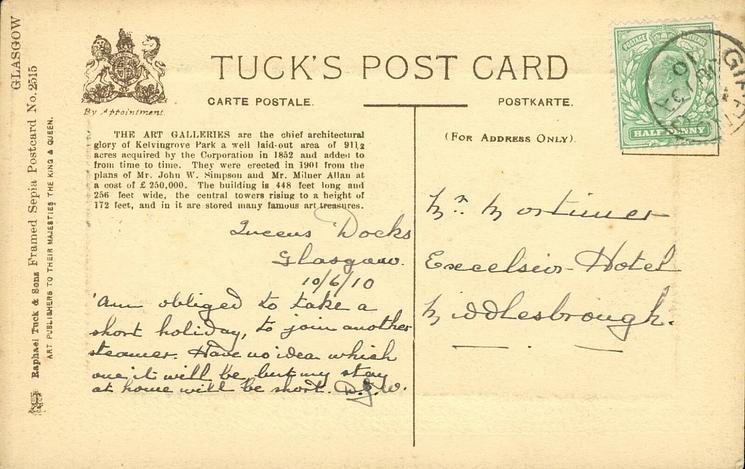 GLASGOW
Raphael Tuck & Sons Framed Sepia Postcard No. 2515
ART PUBLISHERS TO THEIR MAJESTIES THE KING & QUEEN.
By Appointment.
TUCK'S POST CARD
CARTE POSTALE.
POSTKARTE.
(FOR ADDRESS ONLY).
THE ART GALLERIES are the chief architectural
glory of Kelvingrove Park a well laid-out area of 91½
acres acquired by the Corporation in 1852 and added to
from time to time. They were erected in 1901 from the
plans of Mr. John W. Simpson and Mr. Milner Allan at
a cost of £ 250,000. The building is 448 feet long and
256 feet wide, the central towers rising to a height of
172 feet, and in it are stored many famous art treasures.
Queens Docks
Glasgow.
10/6/10
'Am obliged to take a
short holiday, to join another
steamer. Have no idea which
one it will be, but my stay
at home will be short. D.J.W.
Mr. Mortimer
Excelsior Hotel
Middlesbrough.
POSTAGE
HALF PENNY